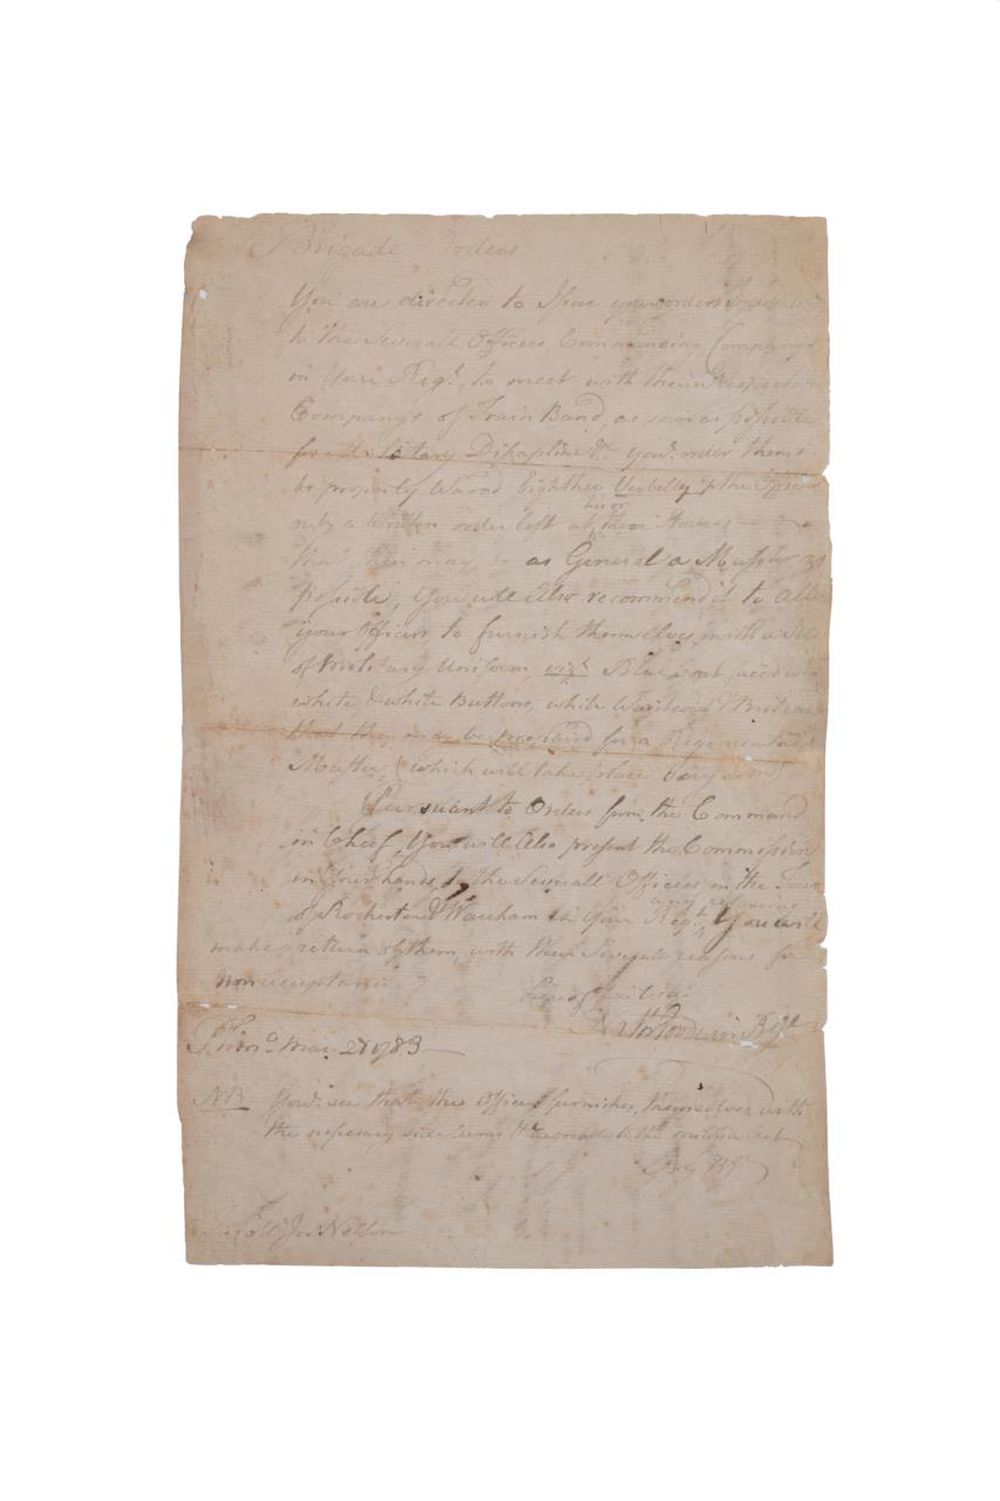 Brigade Orders
You are directed to Issue your orders
to the Severall Officers Commanding Companys
in your Regt, to meet with their Respective
Companys of Train Band, as soon as possible
for Military Disapline &c youl order them
be properly Warnd Eighther Verbelly p the Officer
or by a Written order left at their Houses
that their may as General a Muster as
possible, You will Also recommend it to All
your Officers to furnish themselves with a
of Military Uniform, vizt Blue Coat faced
white & white Buttons, white Wastcoat &
that they may be prepared for a Regemental
Muster (which will take place very soon)
Pursuant to Orders from the Command
in Cheif, You will Also present the Commissions
in your hands to the Severall Officers in the Town
any refuseing
of Rochester & Wareham in your Regt, & You will
make return of them, with their Severall reasons for
non
May 27 1783
NB Youl see that the Officers furnishes themselves with
the nessecary side arms & to the militia Act
Nelson